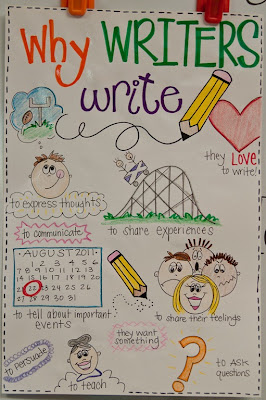 Why WRITERS
write
they LOVE
to write!
to express thoughts
to communicate
to share experiences
AUGUST 2011
1 2 3 4 5 6
7 8 9 10 11 12 13
14 15 16 17 18 19 20
21 22 23 24 25 26 27
28 29 30 31
to tell about important
events
to share their feelings
they want
something
to persuade
to teach
to ASK
questions